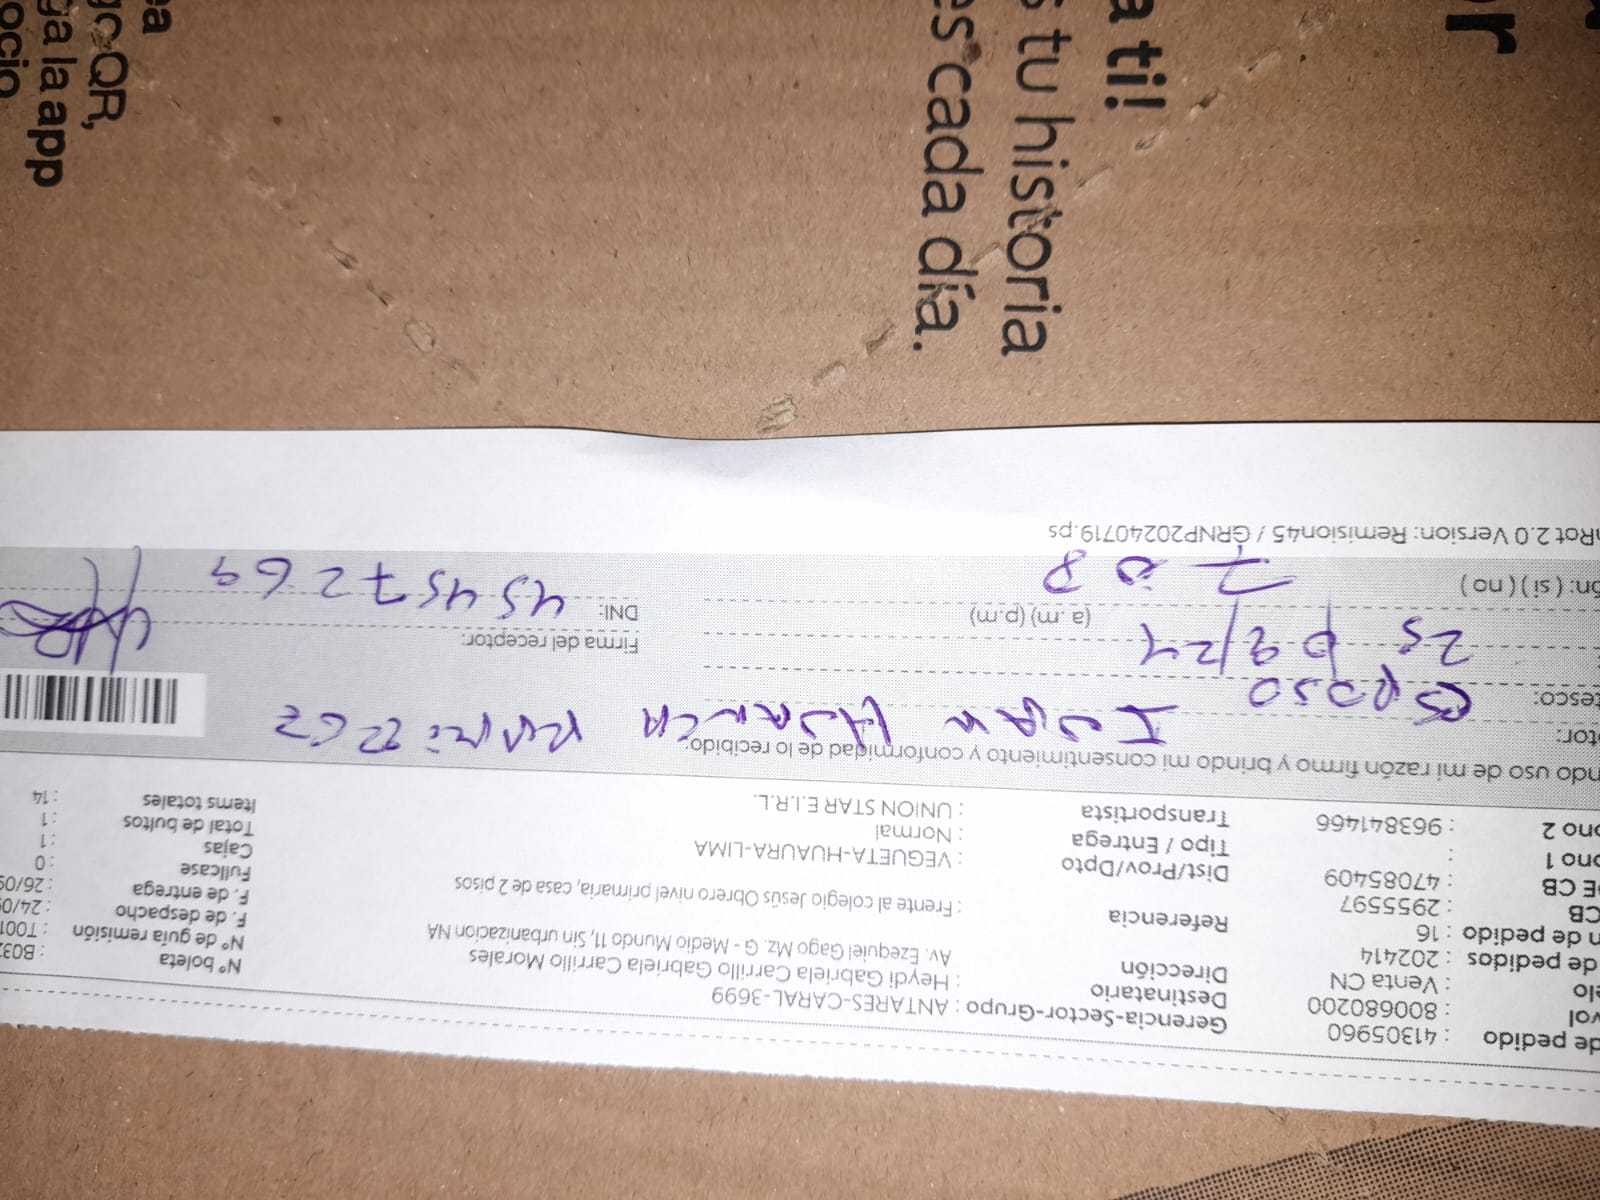 de pedido : 41305960
vol : 800680200
elo : Venta CN
de pedidos : 202414
n de pedido : 16
CB : 2955597
DE CB : 47085409
ono 1 :
ono 2 : 963841466
Gerencia-Sector-Grupo : ANTARES-CARAL-3699
Destinatario : Heydi Gabriela Carrillo Gabriela Carrillo Morales
Dirección Av. Ezequiel Gago Mz. G - Medio Mundo 11, Sin urbanizacion NA
Referencia : Frente al colegio Jesús Obrero nivel primaria, casa de 2 pisos
Dist/Prov/Dpto : VEGUETA-HUAURA-LIMA
Tipo / Entrega : Normal
Transportista : UNION STAR E.I.R.L.
Nº boleta : B032
Nº de guía remisión : T001
F. de despacho : 24/09
F. de entrega : 26/09
Fullcase : 0
Cajas : 1
Total de bultos : 1
Items totales : 14
ndo uso de mi razón firmo y brindo mi consentimiento y conformidad de lo recibido:
ptor: IVAN HUANCA RAMIREZ
tesco: esposo
25 / 09/24 Firma del receptor:
(a.m) (p.m) DNI: 45457269
ón: ( si ) ( no ) 7:08
nRot 2.0 Version: Remision45 / GRNP20240719.ps
a ti!
s tu historia
es cada día.
or
ea
go QR,
ga la app
ocio